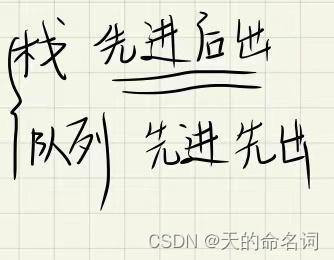 栈 先进后出
队列 先进先出
CSDN @天的命名词